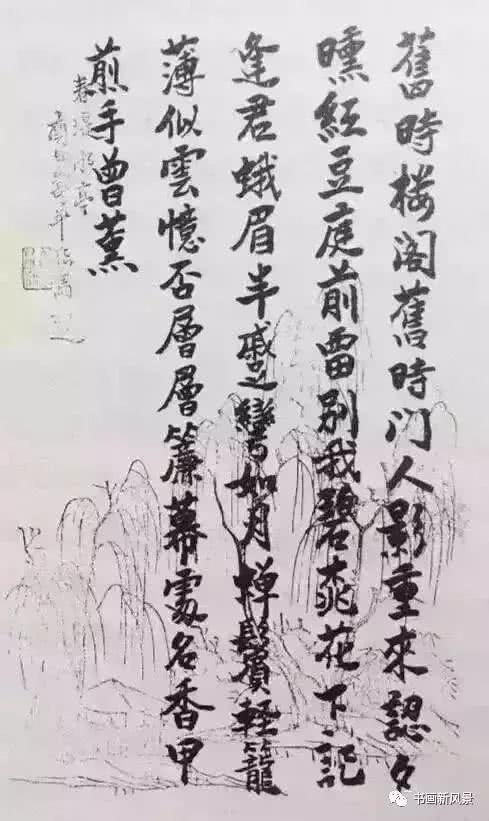 舊時楼阁舊時门人影重來認夕
曛紅豆庭前留別我碧桃花下記
逢君蛾眉半蹙彎如月嚲鬢輕籠
薄似雲憶否層層簾幕處名香甲
煎手曾薰
书画新风景